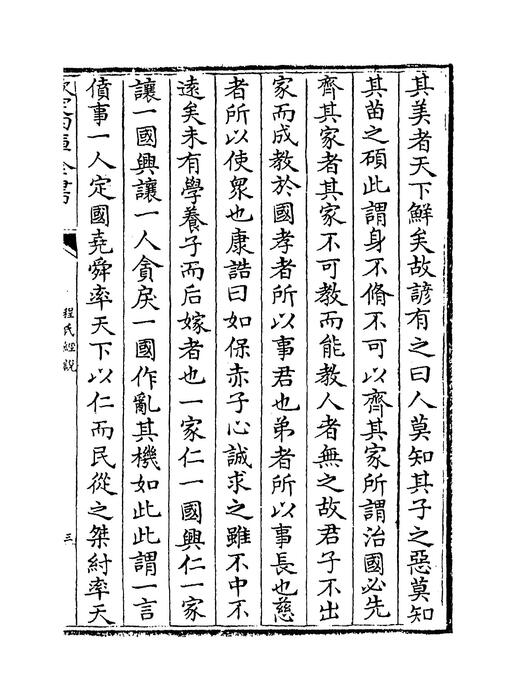 其美者天下鮮矣故諺有之曰人莫知其子之惡莫知
其苗之碩此謂身不脩不可以齊其家所謂治國必先
齊其家者其家不可教而能教人者無之故君子不出
家而成教於國孝者所以事君也弟者所以事長也慈
者所以使眾也康誥曰如保赤子心誠求之雖不中不
遠矣未有學養子而后嫁者也一家仁一國興仁一家
讓一國興讓一人貪戾一國作亂其機如此此謂一言
僨事一人定國堯舜率天下以仁而民從之桀紂率天
欽定四庫全書
程氏經說
三